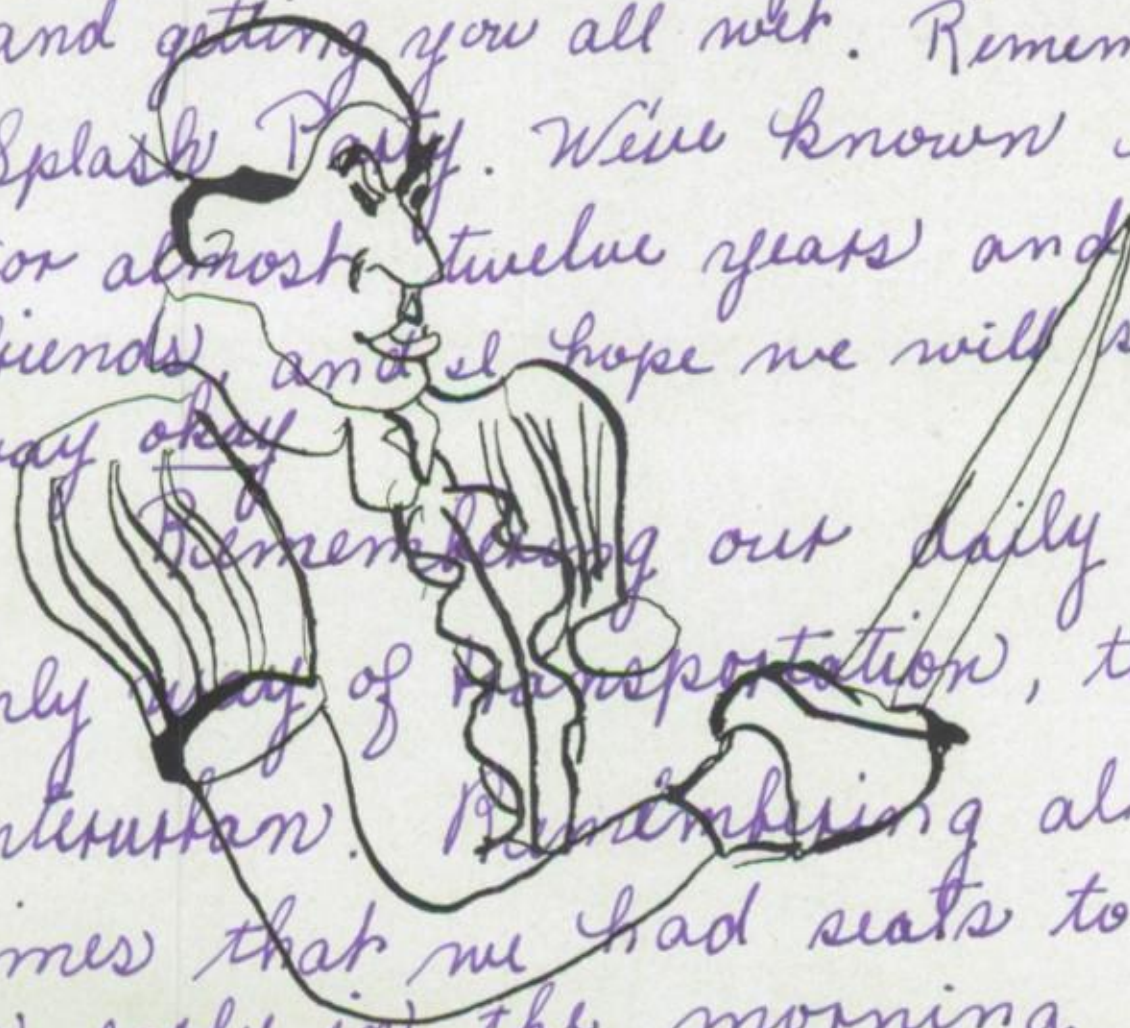 and getting you all wet. Remem
Splash Party. We've known
or almost twelve years and
riends, and I hope we will s
way okay
Remembering our daily
nly way of transportation, t
nterurban. Remembering al
mes that we had seats to
the morning